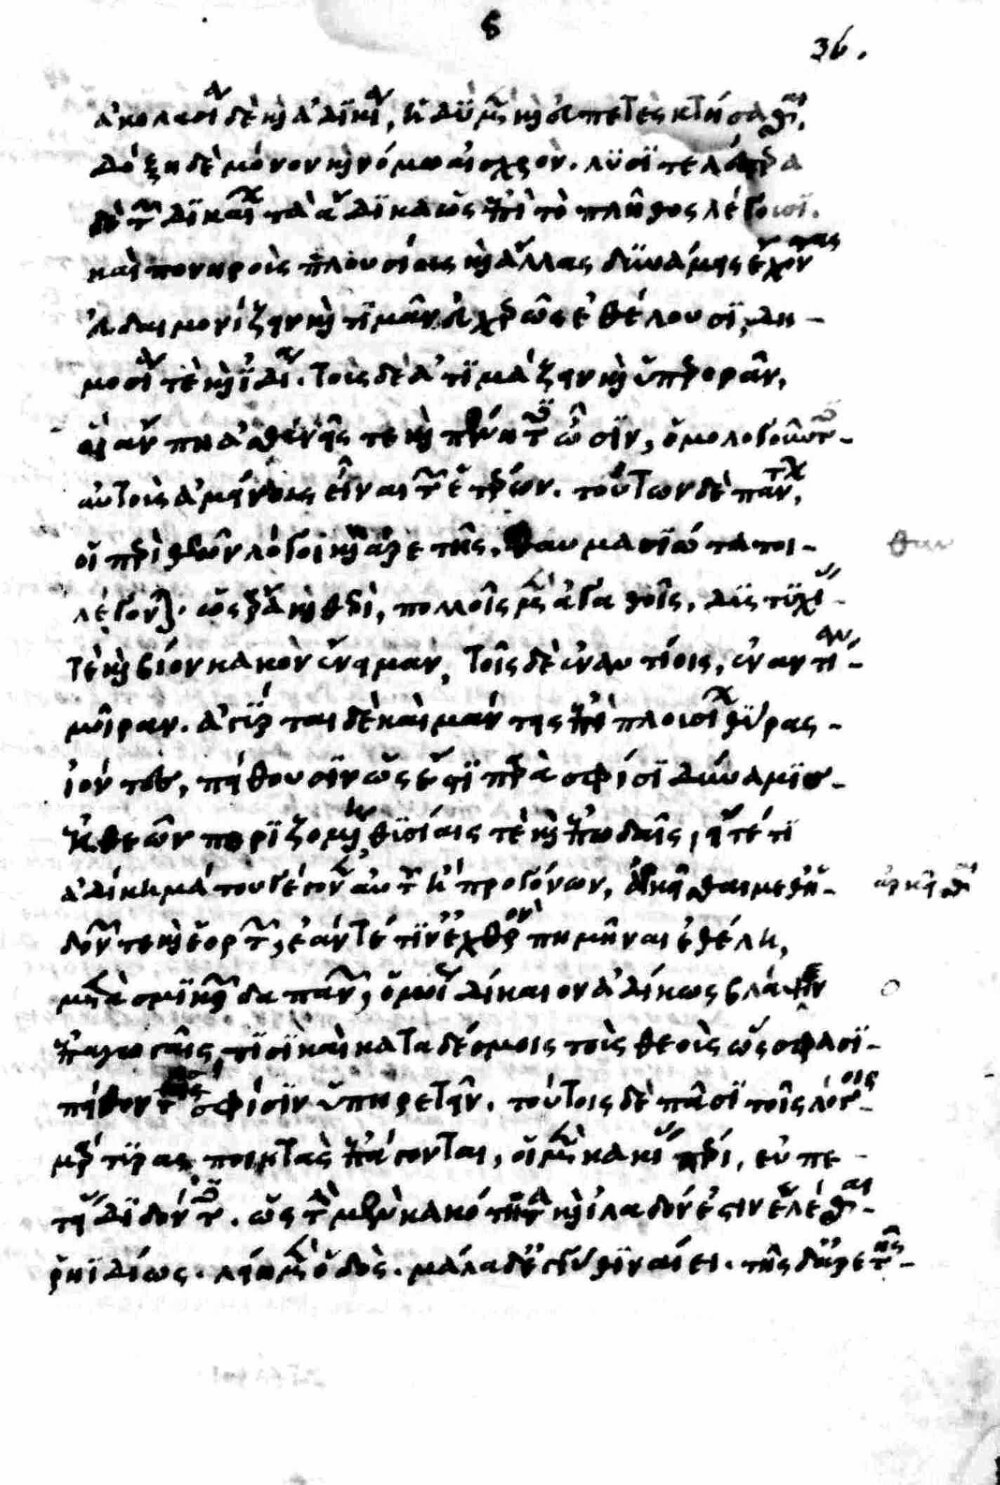 ς
36.
ἀκολασία δὲ καὶ ἀδικία, ἡδὺ μὲν καὶ εὐπετὲς κτήσασθαι,
δόξῃ δὲ μόνον καὶ νόμῳ αἰσχρόν. λυσιτελέστερα
δὲ τῶν δικαίων τὰ ἄδικα ὡς ἐπὶ τὸ πλῆθος λέγουσι.
καὶ πονηροὺς πλουσίους καὶ ἄλλας δυνάμεις ἔχοντας
εὐδαιμονίζειν καὶ τιμᾶν εὐχερῶς ἐθέλουσι, δη-
μοσίᾳ τὲ καὶ ἰδίᾳ. τοὺς δὲ ἀτιμάζειν καὶ ὑπερορᾶν,
οἳ ἄν πη ἀσθενεῖς τε καὶ πένητες ὦσιν, ὁμολογοῦντες
αὐτοὺς ἀμείνους εἶναι τῶν ἑτέρων. τούτων δὲ πάντων,
οἱ περὶ θεῶν λόγοι καὶ ἀρετῆς, θαυμασιώτατοι
λέγονται. ὡς ἄρα καὶ θεοὶ, πολλοῖς μὲν ἀγαθοῖς, δυστυχίας
τὲ καὶ βίον κακὸν ἔνειμαν, τοῖς δὲ ἐναντίοις, ἐναντίαν
μοῖραν. ἀγύρται δὲ καὶ μάντεις ἐπὶ πλουσίων θύρας
ἰόντες, πείθουσιν ὡς ἔστι παρὰ σφίσι δύναμις
ἐκ θεῶν ποριζομένη θυσίαις τὲ καὶ ἐπωδαῖς, εἴτέ τι
ἀδίκημά του γέγονεν αὐτοῦ ἢ προγόνων, ἀκεῖσθαι μεθ' ἡ-
δονῶν τε καὶ ἑορτῶν, ἐάν τέ τιν' ἐχθρὸν πημῆναι ἐθέλη,
μετὰ σμικρῶν δαπανῶν, ὁμοίως δίκαιον ἀδίκως βλάψειν
ἐπαγωγαῖς τισὶ καὶ καταδέσμοις τοὺς θεοὺς ὥς φασι
πείθοντές σφίσιν ὑπηρετεῖν. τούτοις δὲ πᾶσι τοῖς λόγοις
μάρτυρας ποιητὰς ἐπάγονται, οἱ μὲν κακίας πέρι, εὐπε-
τείας διδόντες. ὡς τὴν μὲν κακότητα καὶ ἰλαδόν ἐστιν ἑλέσθαι
ῥηϊδίως. λείη μὲν ὁδὸς. μάλα δ' ἐγγύθι ναίει. τῆς δ' ἀρετῆς